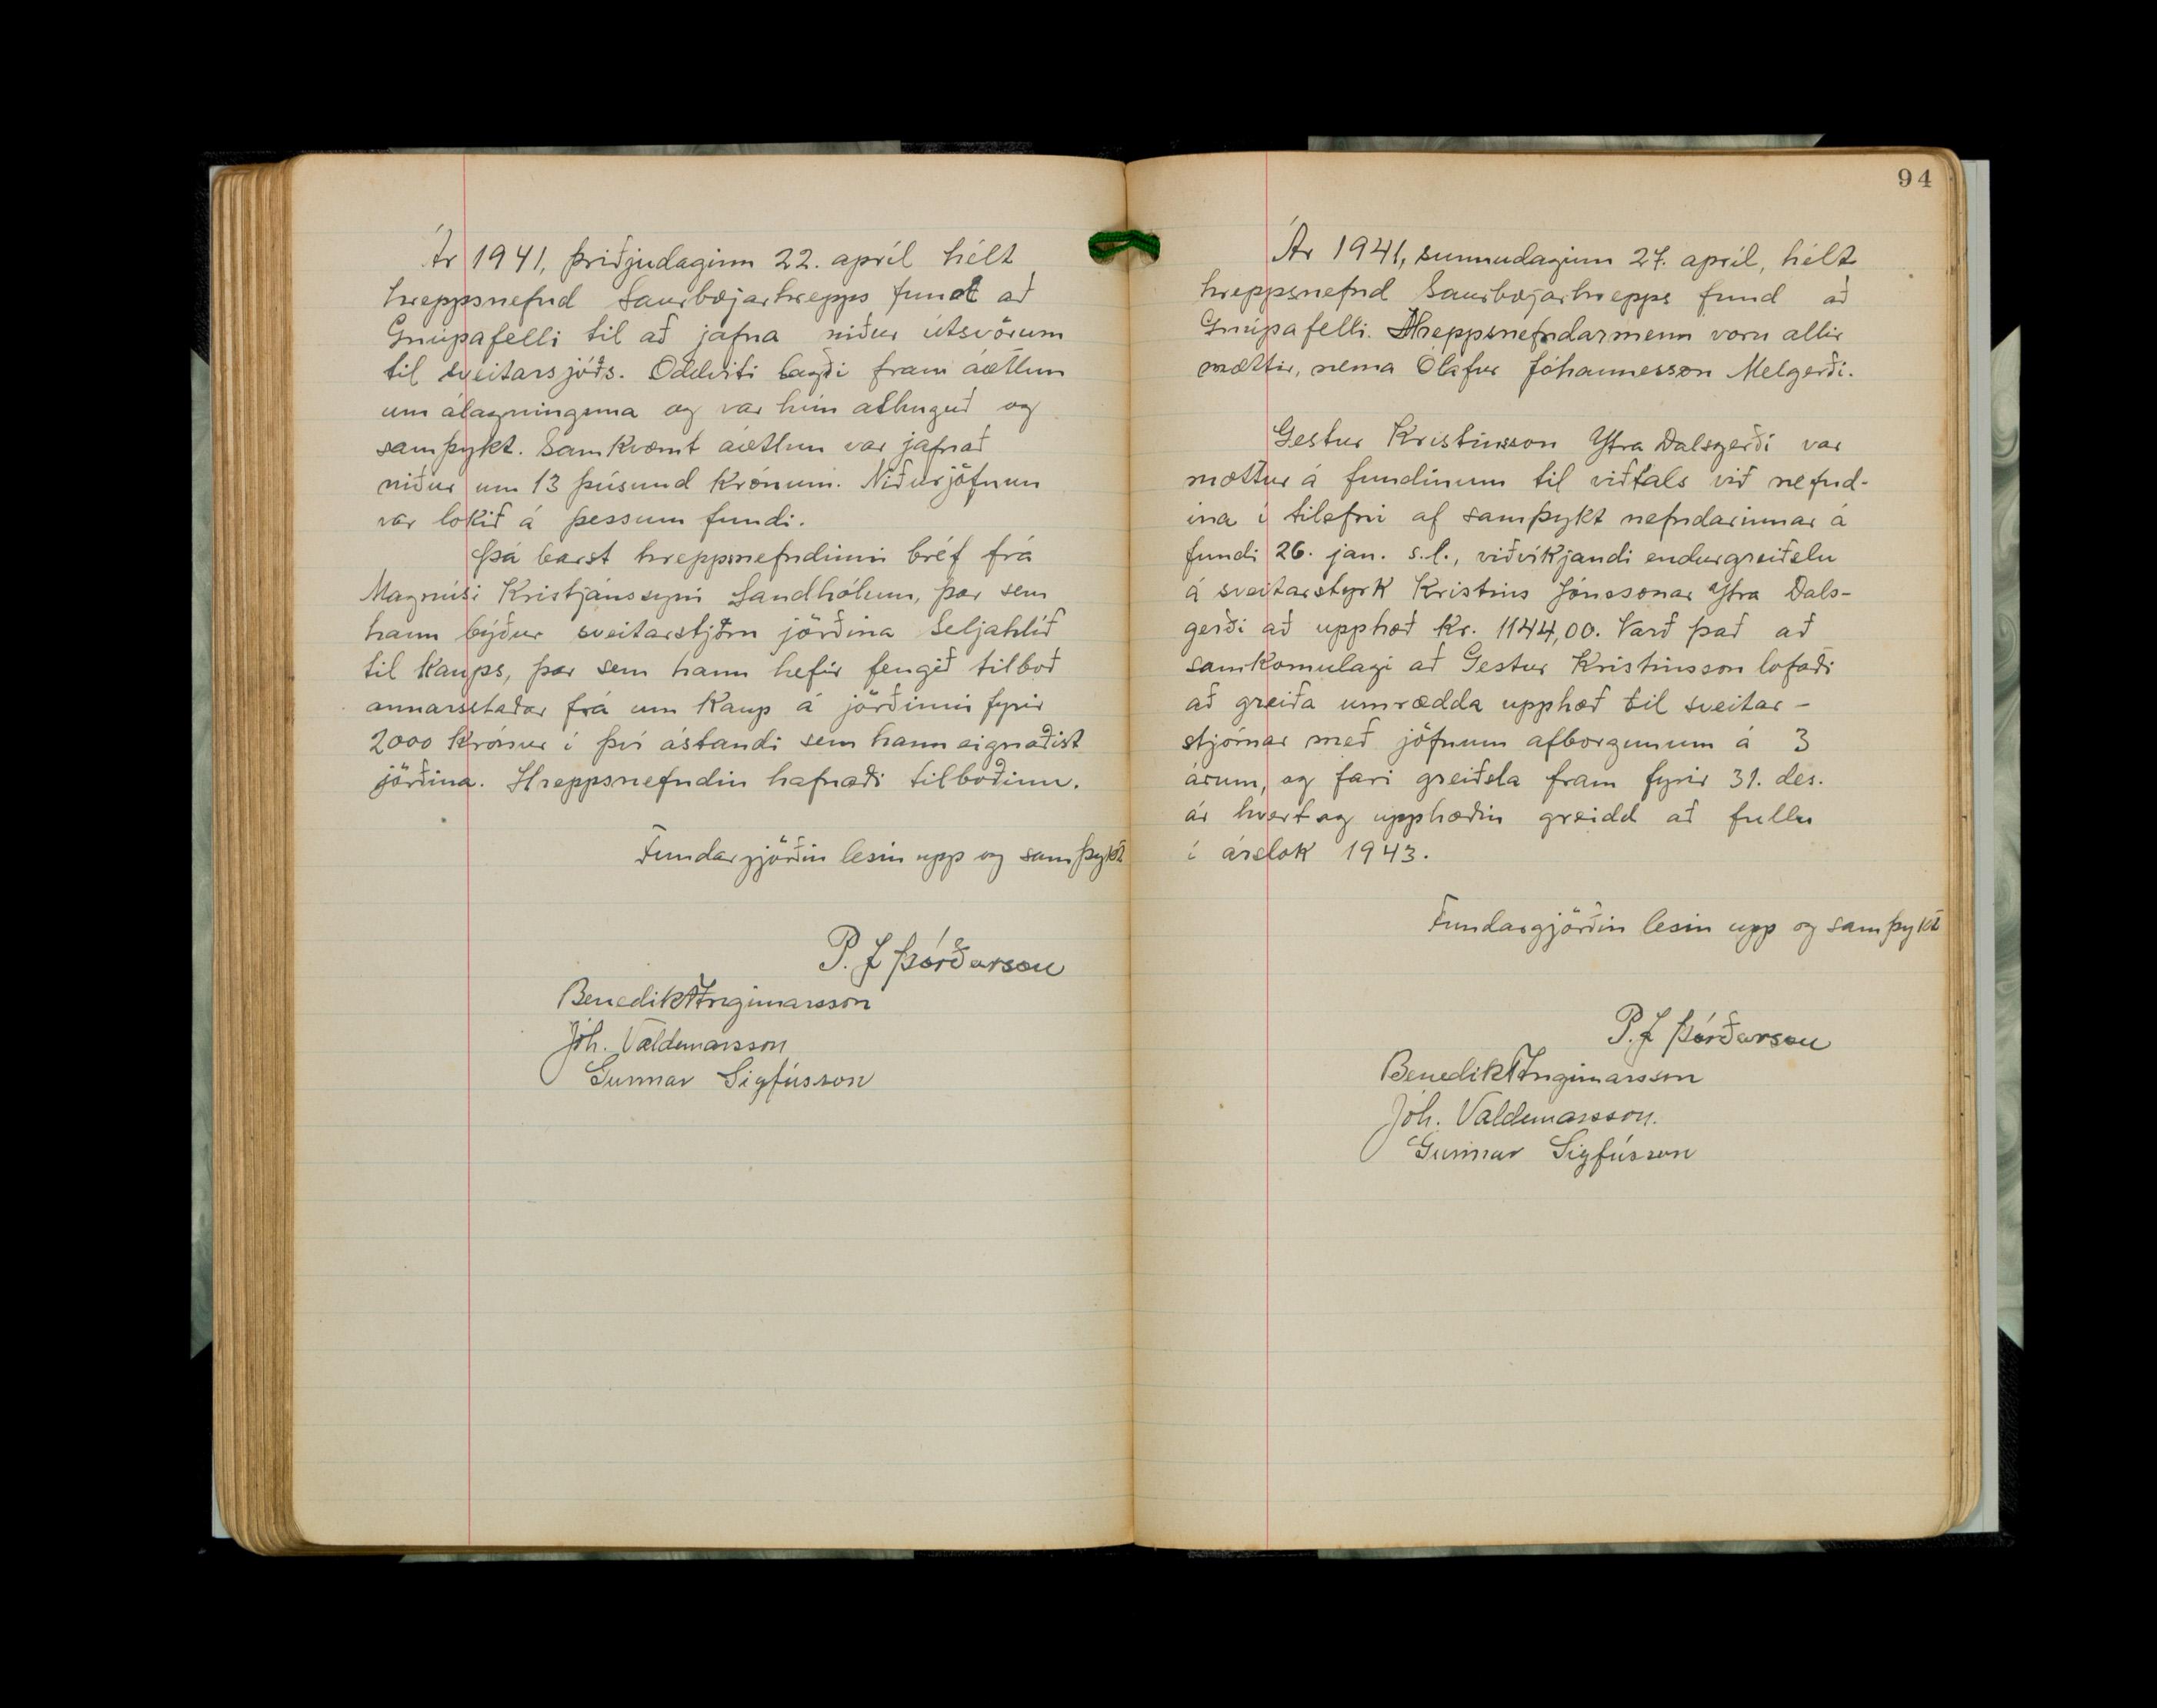 Ár 1941, þriðjudaginn 22. apríl hélt
hreppsnefnd Saurbæjarhrepps fund að
Gnúpafelli til að jafna niður útsvörum
til sveitarsjóðs. Oddviti lagði fram áætlun
um álagninguna og var hún athuguð og
samþykt. Samkvæmt áætlun var jafnað
niður um 13 þúsund krónum. Niðurjöfnun
var lokið á þessum fundi.
Þá barst hreppsnefndinni bréf frá
Magnúsi Kristjánssyni Sandhólum, þar sem
hann býður sveitarstjórn jörðina Seljahlíð
til kaups, þar sem hann hefir fengið tilboð
annarsstaðar frá um kaup á jörðinni fyrir
2000 krónur í því ástandi sem hann eignaðist
jörðina. Hreppsnefndin hafnaði tilboðinu.
Fundargjörðin lesin upp og samþykt
P. J Þórðarson
Benedikt Ingimarsson
Jóh. Valdemarsson
Gunnar Sigfússon
94
Ár 1941, sunnudaginn 27. apríl, hélt
hreppsnefnd Saurbæjarhrepps fund að
Gnúpafelli. Hreppsnefndarmenn voru allir
mættir, nema Ólafur Jóhannesson Melgerði.
Gestur Kristinsson Ytra Dalsgerði var
mættur á fundinum til viðtals við nefnd-
ina í tilefni af samþykt nefndarinnar á
fundi 26. jan. s.l., viðvíkjandi endurgreiðslu
á sveitarstyrk Kristins Jónssonar Ytra Dals-
gerði að upphæð kr. 1144,00. Varð það að
samkomulagi að Gestur Kristinsson lofaði
að greiða umrædda upphæð til sveitar-
stjórnar með jöfnum afborgunum á 3
árum, og fari greiðsla fram fyrir 31. des.
ár hvert og upphæðin greidd að fullu
í árslok 1943.
Fundargjörðin lesin upp og samþykt
P. J Þórðarson
Benedikt Ingimarsson
Jóh. Valdemarsson.
Gunnar Sigfússon